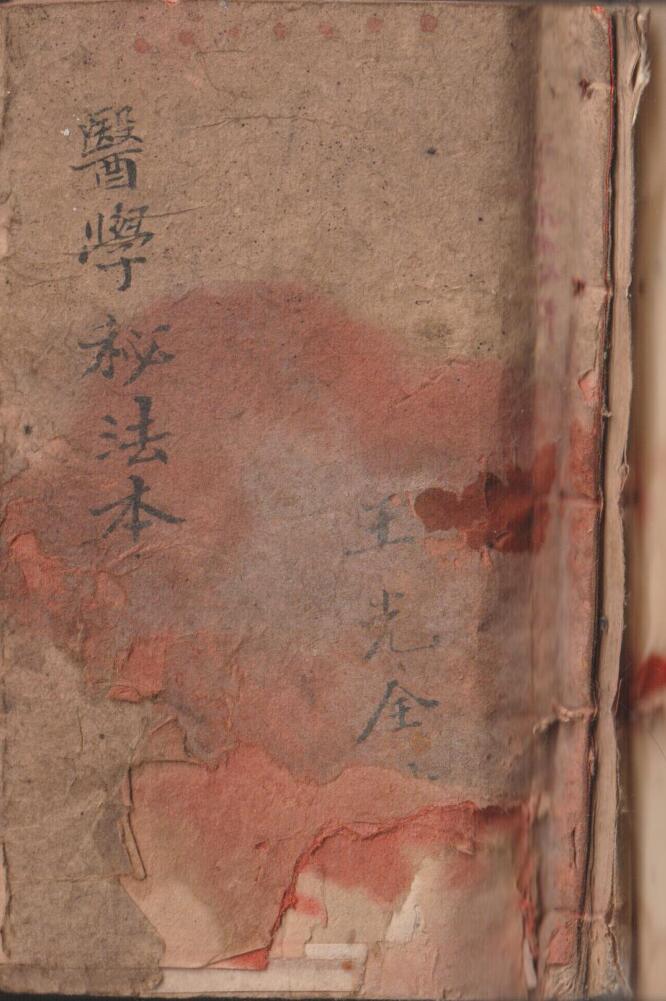 王光全
醫學秘法本